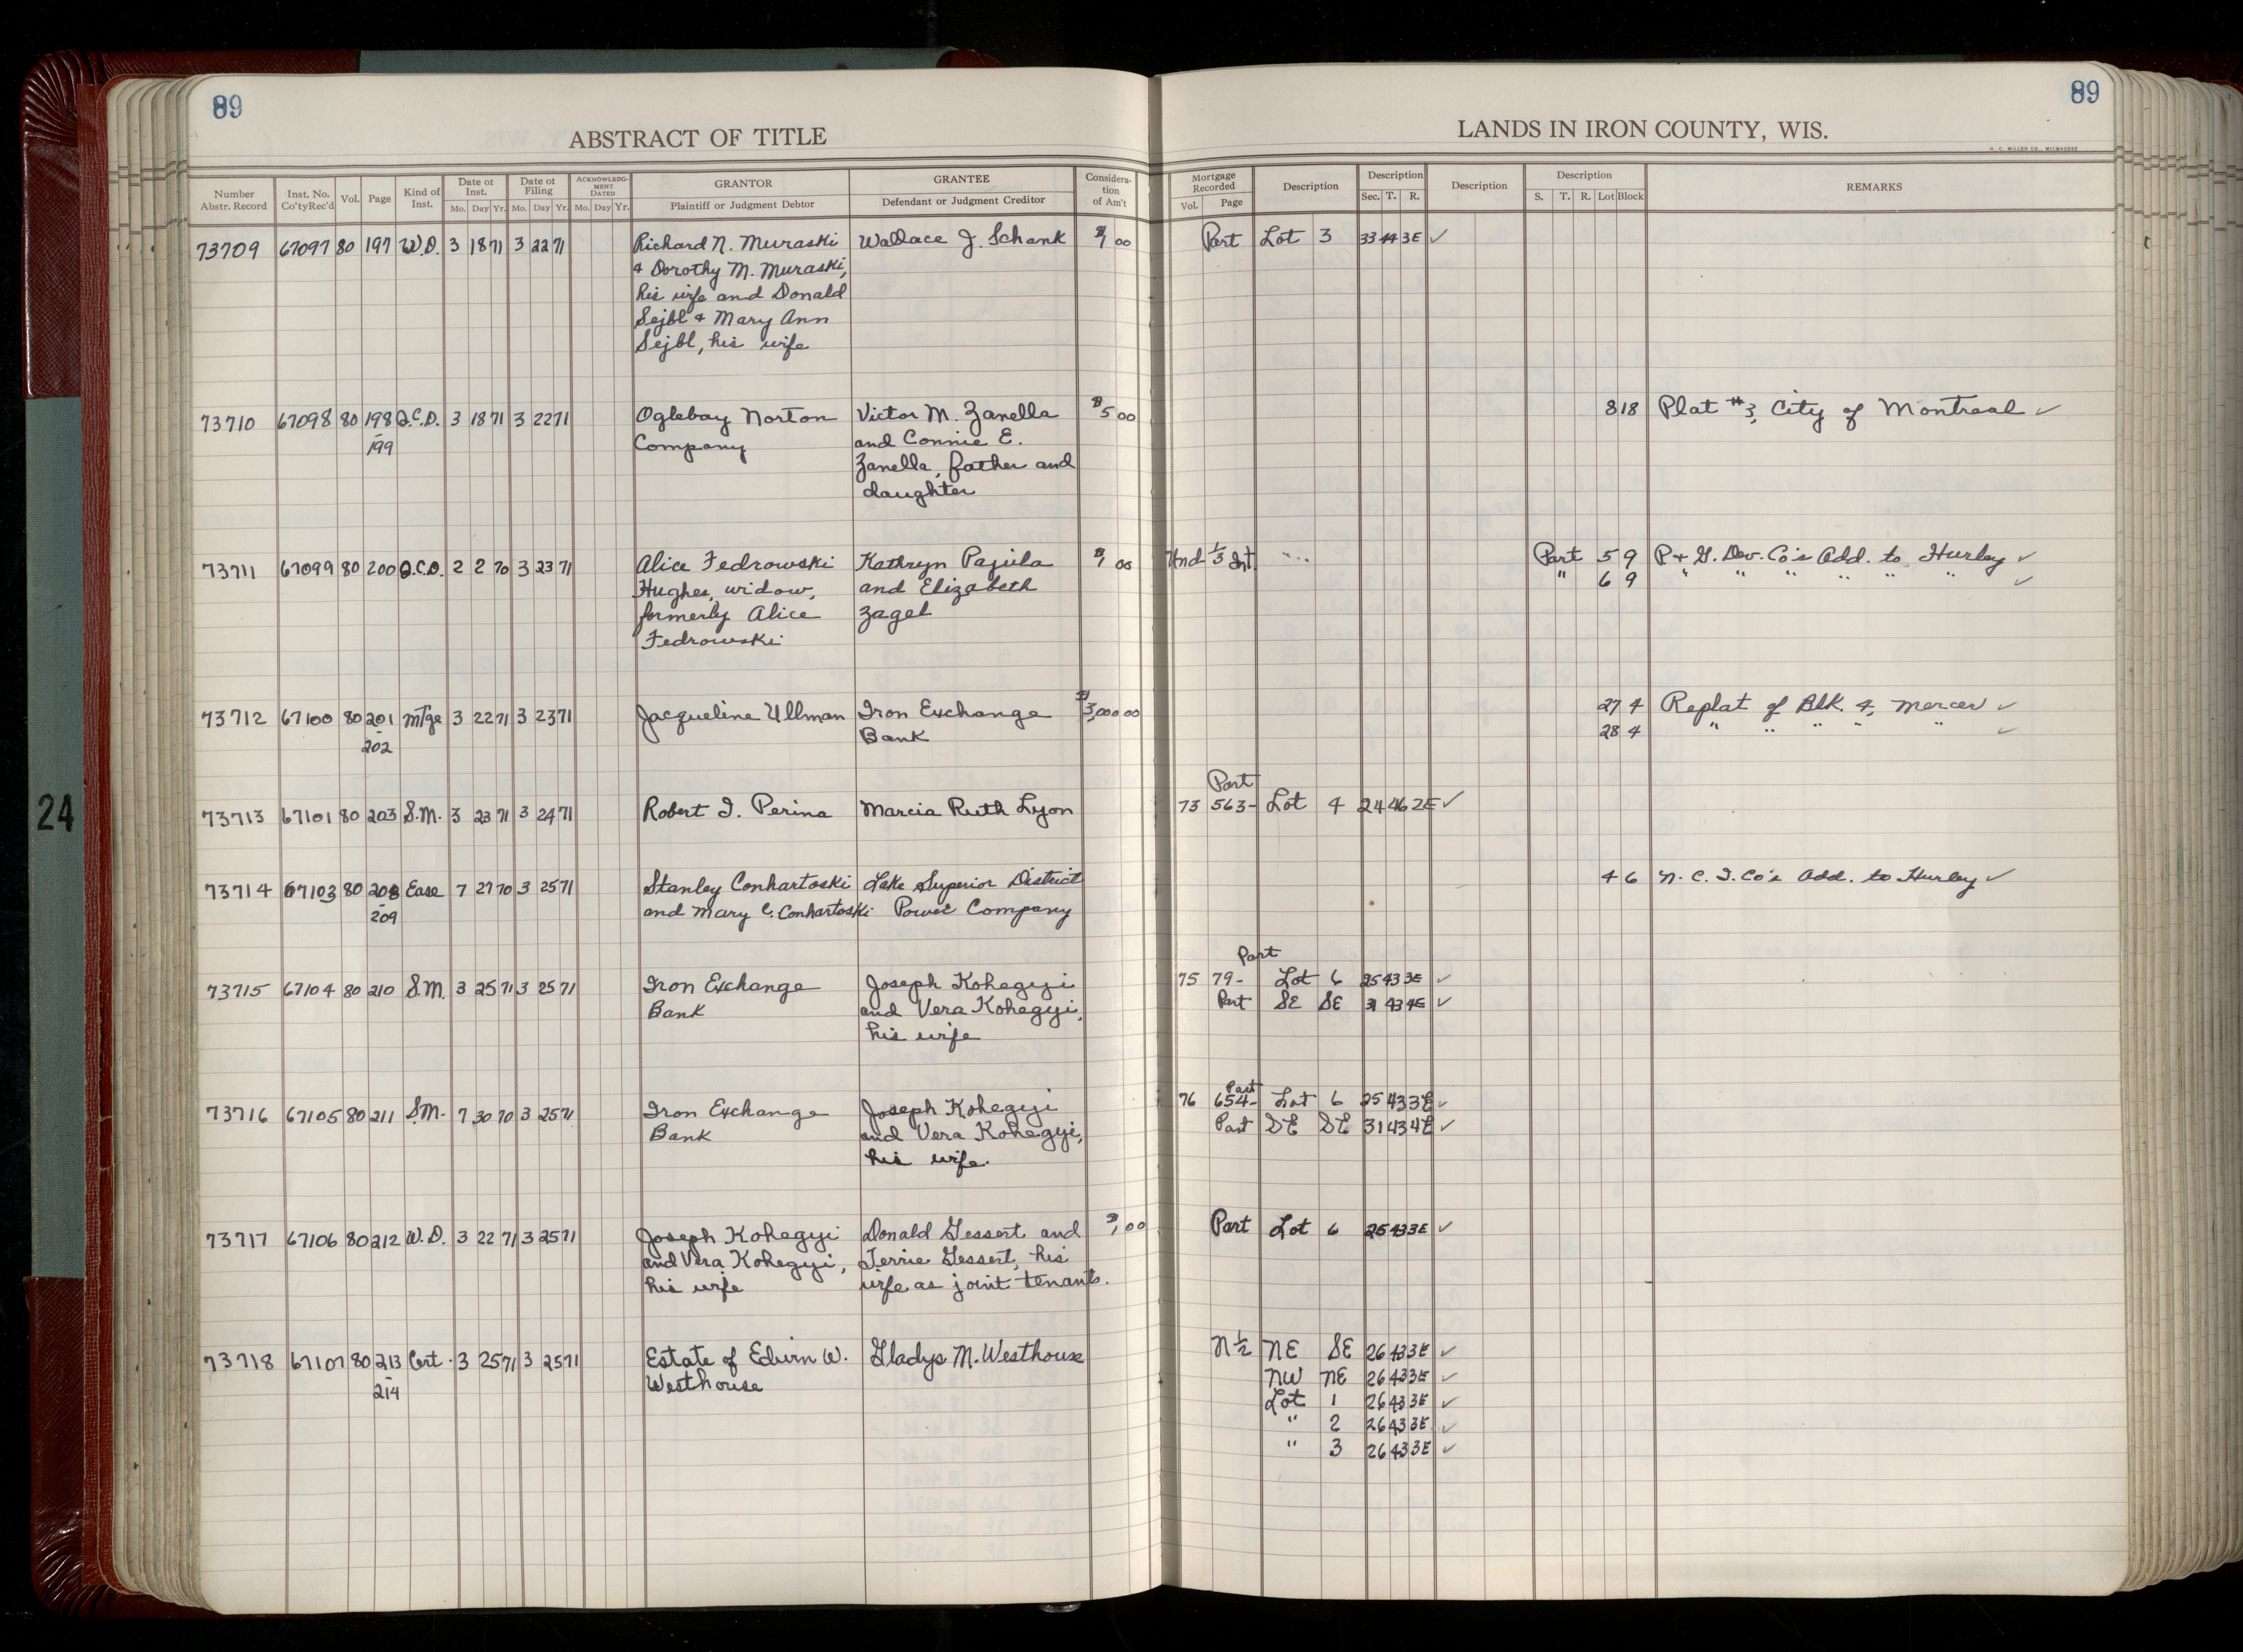 89
89
ABSTRACT OF TITLE
LANDS IN IRON COUNTY, WIS.
H. C. MILLER CO., MILWAUKEE
Number Abstr. Record Inst. No. Co'tyRec'd Vol. Page Kind of Inst. Date of Inst. Mo. Day Yr. Date of Filing Mo. Day Yr. ACKNOWLEDGMENT DATED Mo. Day Yr. GRANTOR Plaintiff or Judgment Debtor GRANTEE Defendant or Judgment Creditor Consideration of Am't Mortgage Recorded Vol. Page Description Description Sec. T. R. Description Description S. T. R. Lot Block REMARKS
73709 67097 80 197 W.D. 3 18 71 3 22 71 Richard N. Muraski Wallace J. Schank $1 00 Part Lot 3 33 44 3E ✓
& Dorothy M. Muraski,
his wife and Donald
Sejbl & Mary Ann
Sejbl, his wife
73710 67098 80 198 Q.C.D. 3 18 71 3 22 71 Oglebay Norton Victor M. Zanella $5 00 8 18 Plat #3, City of Montreal ✓
- 199 Company and Connie E.
Zanella, father and
daughter
73711 67099 80 200 Q.C.D. 2 2 70 3 23 71 Alice Fedrowski Kathryn Pajula $1 00 Und 1/3 Int. Part 5 9 P & G. Dev. Co's Add. to Hurley ✓
Hughes, widow, and Elizabeth " 6 9 " " " " " " ✓
formerly Alice Zagel
Fedrowski
73712 67100 80 201 Mtge 3 22 71 3 23 71 Jacqueline Ullman Iron Exchange $3,000 00 27 4 Replat of Blk. 4, Mercer ✓
- 202 Bank 28 4 " " " " " ✓
Part
73713 67101 80 203 S.M. 3 23 71 3 24 71 Robert I. Perina Marcia Ruth Lyon 73 563- Lot 4 24 46 2E ✓
73714 67103 80 208 Ease 7 27 70 3 25 71 Stanley Conhartoski Lake Superior District 4 6 N. C. I. Co's Add. to Hurley ✓
- 209 and Mary C. Conhartoski Power Company
Part
73715 67104 80 210 S.M. 3 25 71 3 25 71 Iron Exchange Joseph Kohegyi 75 79- Lot 6 25 43 3E ✓
Bank and Vera Kohegyi, Part SE SE 31 43 4E ✓
his wife
Part
73716 67105 80 211 S.M. 7 30 70 3 25 71 Iron Exchange Joseph Kohegyi 76 654- Lot 6 25 43 3E ✓
Bank and Vera Kohegyi, Part SE SE 31 43 4E ✓
his wife.
73717 67106 80 212 W.D. 3 22 71 3 25 71 Joseph Kohegyi Donald Gessert and $1 00 Part Lot 6 25 43 3E ✓
and Vera Kohegyi, Terrie Gessert, his
his wife wife as joint tenants.
73718 67107 80 213 Cert. 3 25 71 3 25 71 Estate of Edwin W. Gladys M. Westhouse N 1/2 NE SE 26 43 3E ✓
- 214 Westhouse NW NE 26 43 3E ✓
Lot 1 26 43 3E ✓
" 2 26 43 3E ✓
" 3 26 43 3E ✓
24